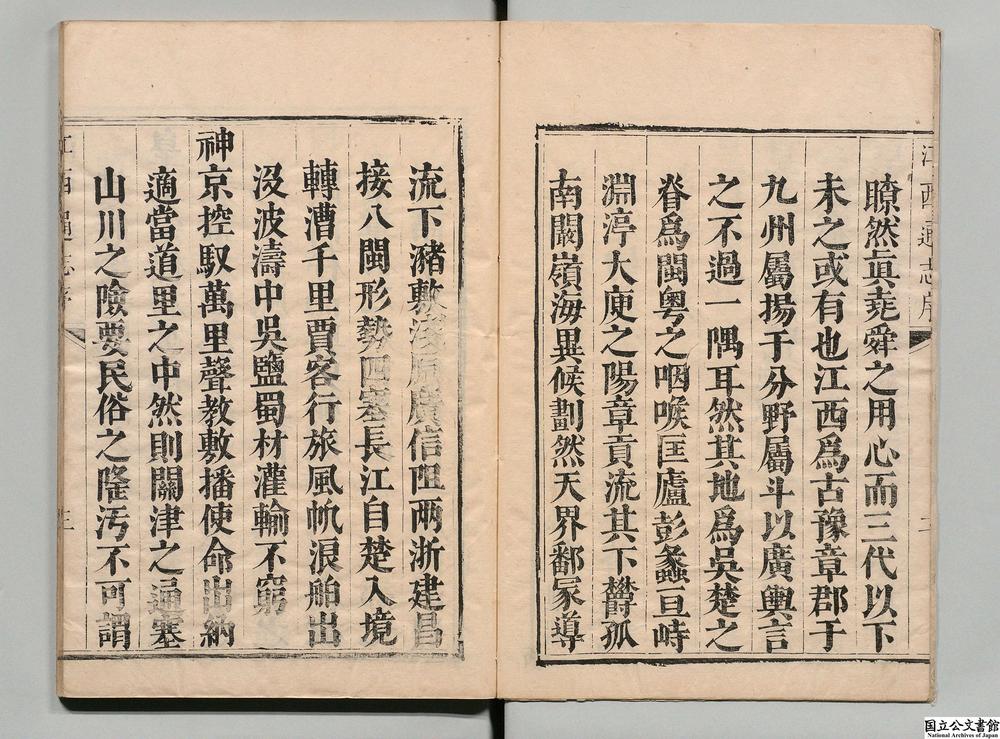 江西通志序
瞭然眞堯舜之用心而三代以下
未之或有也江西爲古豫章郡于
九州屬揚于分野屬斗以廣輿言
之不過一隅耳然其地爲吳楚之
脊爲閩粤之咽喉匡廬彭蠡亘峙
淵渟大庾之陽章貢流其下欝孤
南闢嶺海異候劃然天界鄱冡導
流下瀦敷淺原廣信阻两浙建昌
接八閩形勢四塞長江自楚入境
轉漕千里賈客行旅風帆浪舶出
没波濤中吳鹽蜀材灌輸不窮
神京控馭萬里聲教敷播使命出納
適當道里之中然則關津之通塞
山川之險要民俗之隆汚不可謂
江西通志序
三
国立公文書館
National Archives of Japan